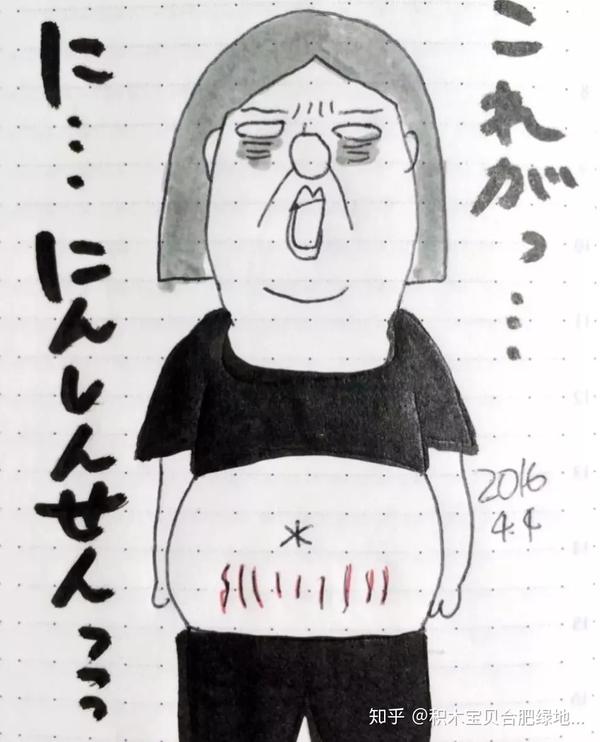 これがっ…
に…
にんしんせんっっっ
2016
4.4
知乎 @积木宝贝合肥绿地...